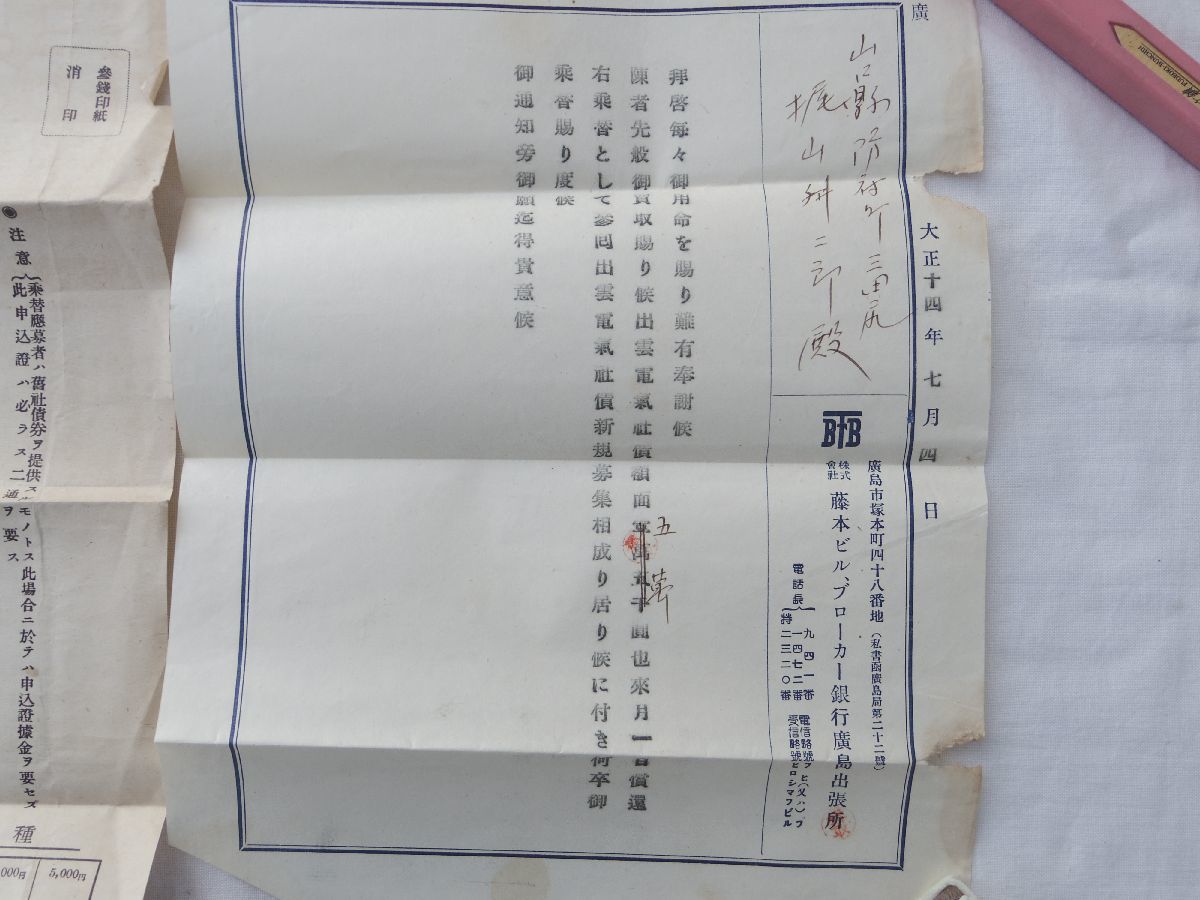 廣
大正十四年七月四日
山口縣防府町三田尻
梶山舛二郎殿
BTB
廣島市塚本町四十八番地（私書函廣島局第二十二號）
株式會社 藤本ビル、ブローカー銀行廣島出張所
電話長 九四一番
一四七二番
特二三二〇番
電信略號フヒ（又ハ）フ
受信略號ヒロシマフビル
拜啓每々御用命を賜り難有奉謝候
陳者先般御買取賜り候出雲電氣社債額面壹萬五千圓也來月一日償還
五
右乘替として參回出雲電氣社債新規募集相成り居り候に付き何卒御
乘替賜り度候
御通知旁御願迄得貴意候
參錢印紙
消印
◉注意
乘替應募者ハ舊社債券ヲ提供スルモノトス此場合ニ於テハ申込證據金ヲ要セズ
此申込證ハ必ラス二通ヲ要ス
種
000円
5,000円